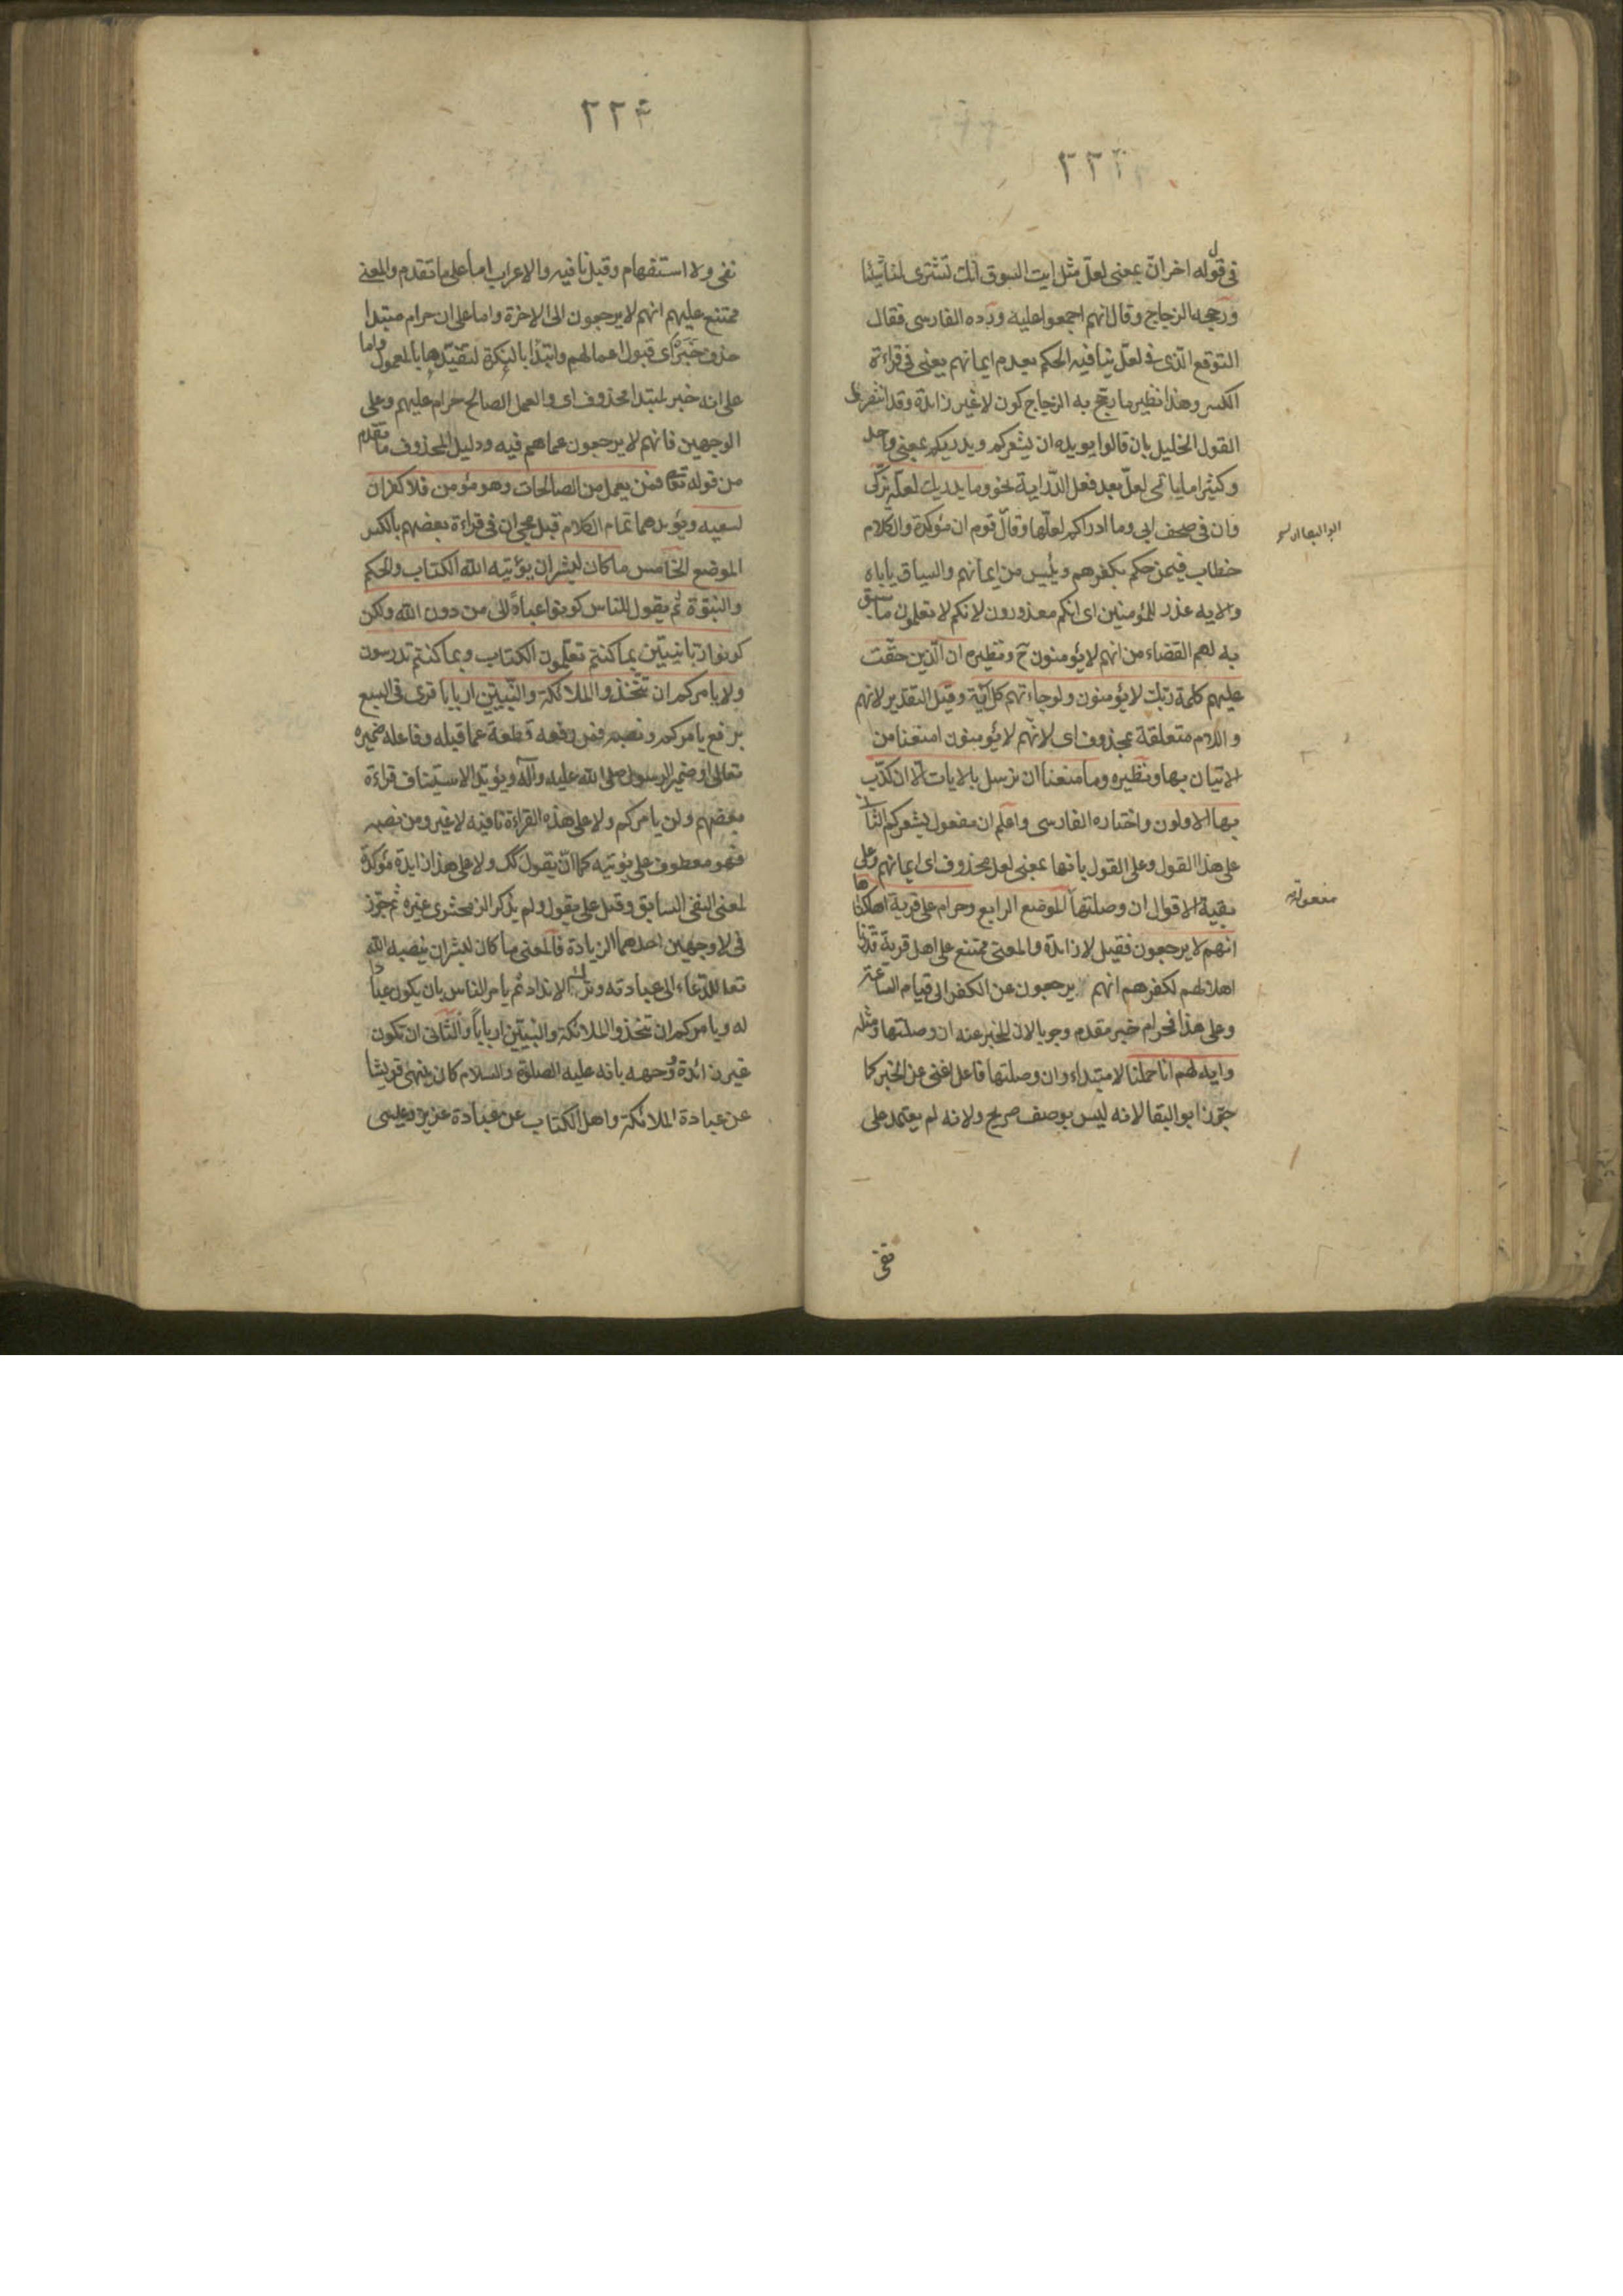 ٢٢٣
في قوله اخر ان بمعنى لعل مثل ايت السوق انك تشترى لنا شيئا
ورجحه الزجاج وقال انهم اجمعوا عليه ورده الفارسى فقال
التوقع الذى فى لعل ينافيه الحكم بعدم ايمانهم يعنى فى قراءة
الكسر وهذا نظير ما رجح به الزجاج كون لا غير زائدة وقد انتصروا
لقول الخليل بان قالوا يويده ان يشعركم ويدريكم بمعنى واحد
وكثيرا ما ياتى لعل بعد فعل الدراية نحو وما يدريك لعله يزكى
وان فى صحف ابى وما ادراكم لعلها وقال قوم ان مؤكدة والكلام
خطاب فيمن حكم بكفرهم ويئس من ايمانهم والسياق ياباه
والايه عذر للمؤمنين اى انكم معذورون لانكم لا تعلمون ما سبق
به لهم القضاء من انهم لا يؤمنون ح ونظيره ان الذين حقت
عليهم كلمة ربك لا يؤمنون ولو جاءتهم كل آية وقيل التقدير لانهم
واللام متعلقة بمحذوف اى لانهم لا يؤمنون امتنعنا من
الاتيان بها ونظيره وما منعنا ان نرسل بالايات الا ان كذب
بها الاولون واختاره الفارسى واعلم ان مفعول يشعركم الثانى
على هذا القول وعلى القول بانها بمعنى لعل محذوف اى ايمانهم وعلى
بقية الاقوال ان وصلتها الموضع الرابع وحرام على قرية اهلكناها
انهم لا يرجعون فقيل لا زائدة والمعنى ممتنع على اهل قرية قدرنا
اهلاكهم لكفرهم انهم يرجعون عن الكفر الى قيام الساعة
وعلى هذا فحرام خبر مقدم وجوبا لان المخبر عنه ان وصلتها ومثله
وايه لهم انا حملنا لا مبتداء وان وصلتها فاعل اغنى عن الخبر كما
جوز ابو البقا لانه ليس بوصف صريح ولانه لم يعتمد على
نفى
٢٢٤
نفى ولا استفهام وقيل نافيه والاعراب اما على ما تقدم والمعنى
ممتنع عليهم انهم لا يرجعون الى الاخرة واما على ان حرام مبتدا
حذف خبره اى قبول اعمالهم وابتدا بالنكرة لتقيدها بالمعمول واما
على انه خبر لمبتدا محذوف اى والعمل الصالح حرام عليهم وعلى
الوجهين فانهم لا يرجعون عما هم فيه ودليل المحذوف ما تقدم
من قوله تعا فمن يعمل من الصالحات وهو مؤمن فلا كفران
لسعيه ويؤيدهما تمام الكلام قبل مجئ ان فى قراءة بعضهم بالكسر
الموضع الخامس ما كان لبشر ان يؤتيه الله الكتاب والحكم
والنبوة ثم يقول للناس كونوا عبادا لى من دون الله ولكن
كونوا ربانيين بما كنتم تعلمون الكتاب وبما كنتم تدرسون
ولا يامركم ان تتخذوا الملائكة والنبيين اربابا قرى فى السبع
برفع يامركم ونصبه فمن رفعه قطعه عما قبله وفاعله ضميره
تعالى او ضمير الرسول صلى الله عليه وآله ويؤيد الاستيناف قراءة
بعضهم ولن يامركم ولا على هذه القراءة نافيه لا غير ومن نصبه
فهو معطوف على يؤتيه كما ان يقول كك ولا على هذا زايدة مؤكدة
لمعنى النفى السابق وقيل على يقول ولم يذكر الزمخشرى غيره ثم جوز
فى لا وجهين احدهما الزيادة فالمعنى ما كان لبشر ان ينصبه الله
تعا للدعاء الى عبادته وترك الانداد ثم يامر الناس بان يكونوا عبادا
له ويامركم ان تتخذوا الملائكة والنبيين اربابا والثانى ان تكون
غير زائدة ووجهه بانه عليه الصلوة والسلام كان ينهى قريشا
عن عبادة الملائكة واهل الكتاب عن عبادة عزير وعيسى